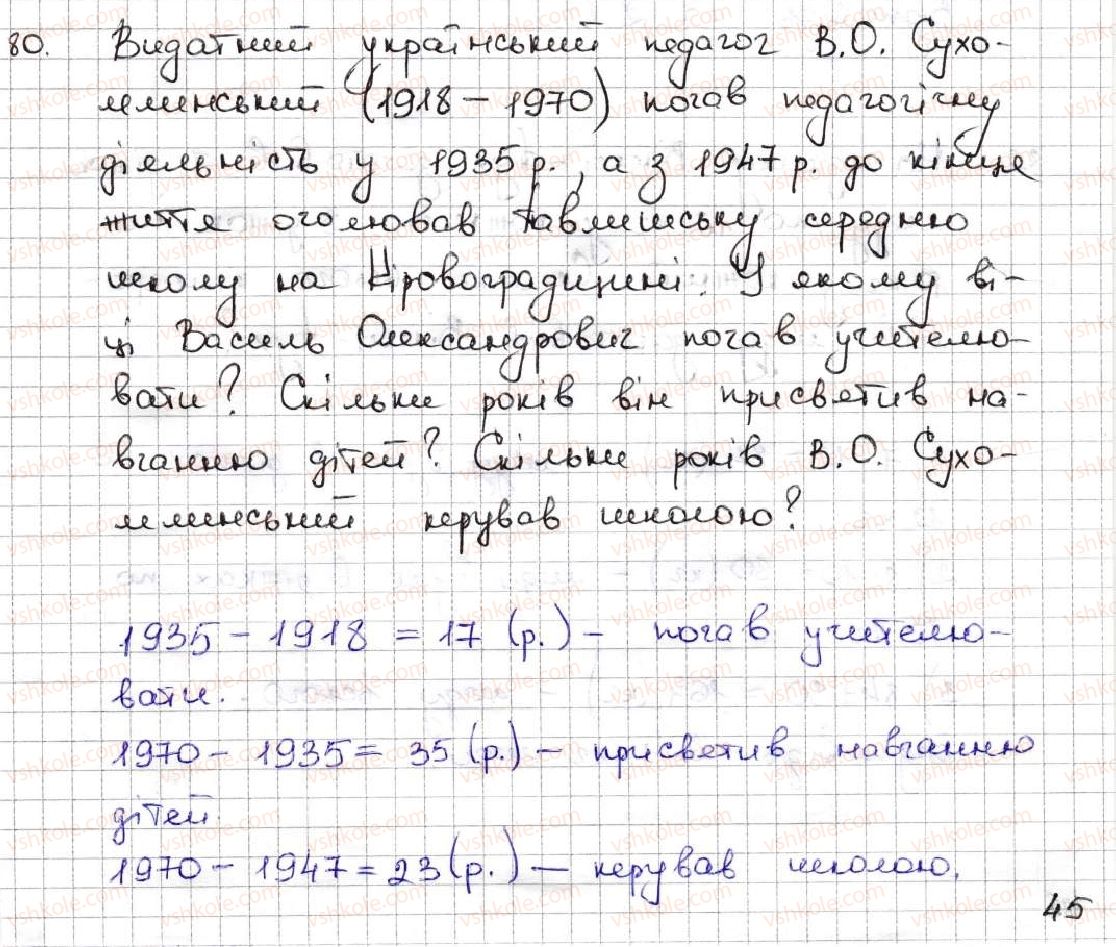 80. Видатний український педагог В.О. Сухо-
млинський (1918 – 1970) почав педагогічну
діяльність у 1935 р., а з 1947 р. до кінця
життя очолював Павлиську середню
школу на Кіровоградщині. У якому ві-
ці Василь Олександрович почав учителю-
вати? Скільки років він присвятив на-
вчанню дітей? Скільки років В.О. Сухо-
млинський керував школою?
1935 – 1918 = 17 (р.) – почав учителю-
вати.
1970 – 1935 = 35 (р.) – присвятив навчанню
дітей
1970 – 1947 = 23 (р.) – керував школою.
45